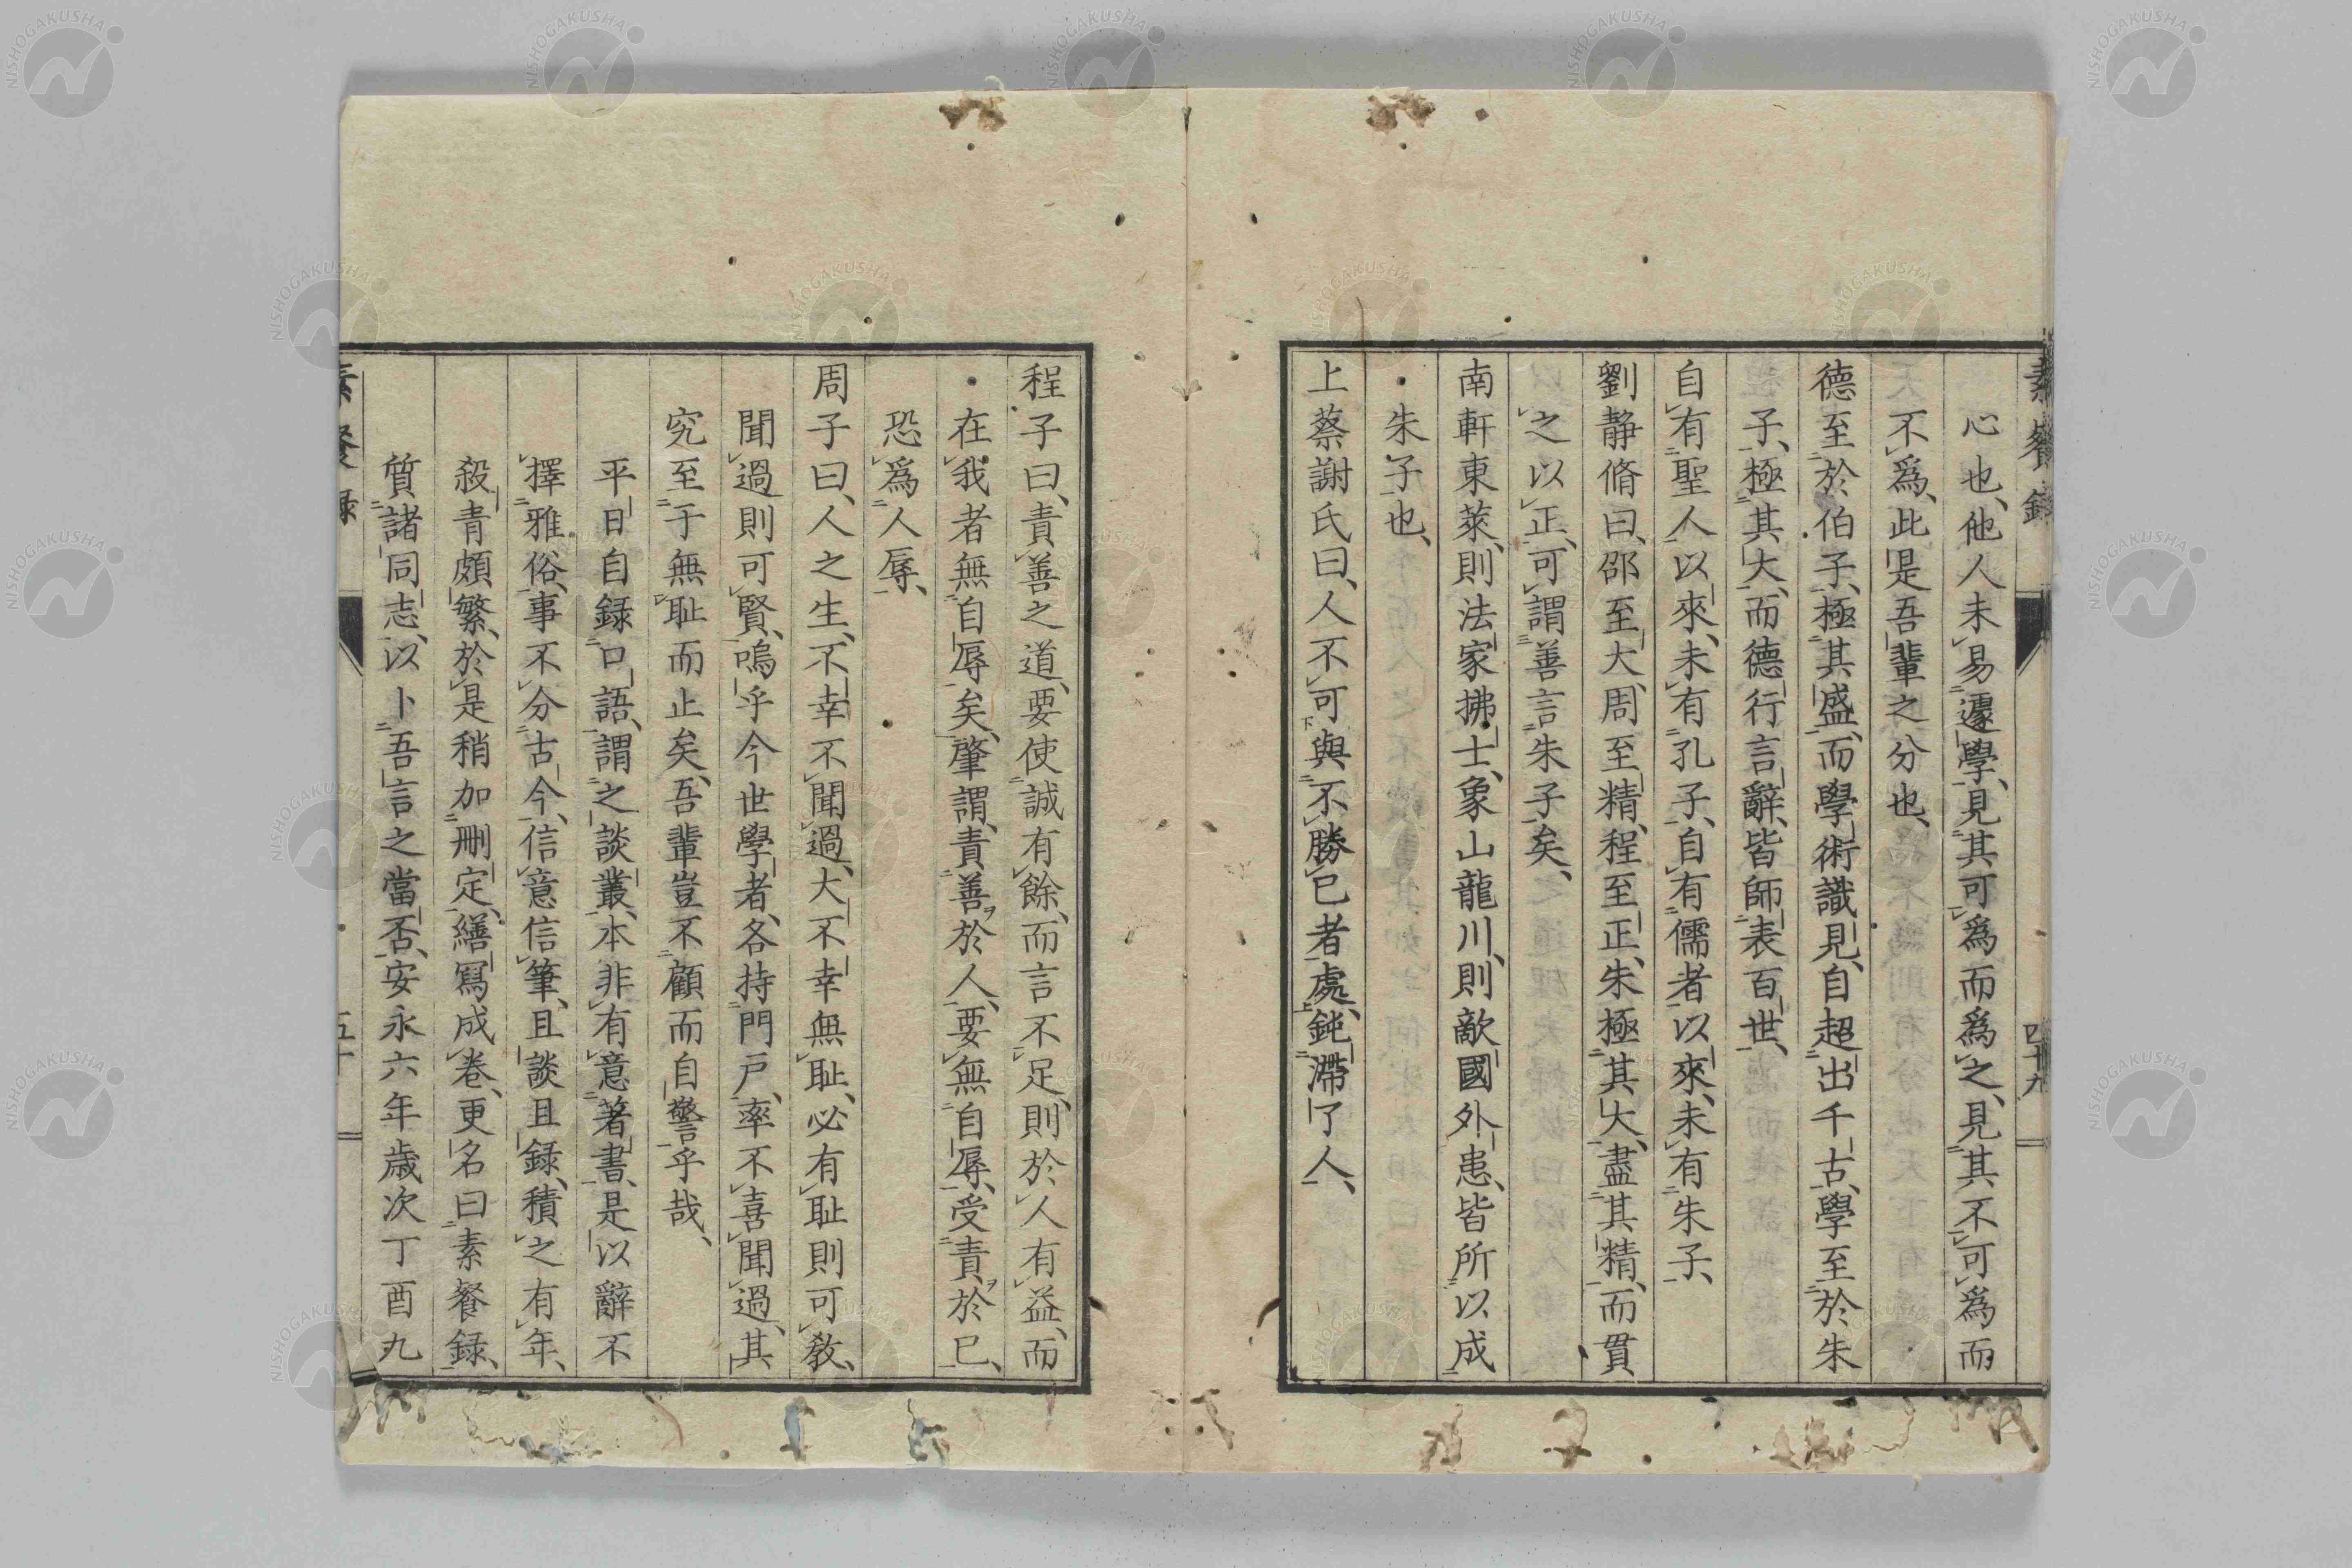 素餐録
四十九
心也、他人未易遽學、見其可爲而爲之、見其不可爲而
不爲、此是吾輩之分也、
德至於伯子、極其盛、而學術識見、自超出千古、學至於朱
子、極其大、而德行言辭、皆師表百世、
自有聖人以來、未有孔子、自有儒者以來、未有朱子、
劉静脩曰、邵至大、周至精、程至正、朱極其大、盡其精、而貫
之以正、可謂善言朱子矣、
南軒東萊、則法家拂士、象山龍川、則敵國外患、皆所以成
朱子也、
上蔡謝氏曰、人不可與不勝已者處、鈍滯了人、
程子曰、責善之道、要使誠有餘、而言不足、則於人有益、而
在我者無自辱矣、肇謂、責善於人、要無自辱、受責於已、
恐爲人辱、
周子曰、人之生、不幸不聞過、大不幸無耻、必有耻則可教、
聞過則可賢、嗚乎今世學者、各持門戸、率不喜聞過、其
究至于無耻而止矣、吾輩豈不顧而自警乎哉、
平日自録口語、謂之談叢、本非有意著書、是以辭不
擇雅俗、事不分古今、信意信筆、且談且録、積之有年、
殺青頗繁、於是稍加刪定、繕寫成卷、更名曰素餐録、
質諸同志、以卜吾言之當否、安永六年歳次丁酉九
素餐録
五十
NISHOGAKUSHA